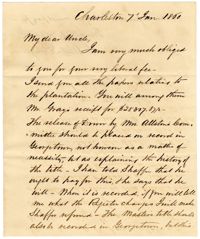 Charleston 7 Jan. 1860
My dear Uncle,
I am very much obliged
to you for your very liberal fee.
I send you all the papers relating to
the plantation. You will among them
Mr Grays receipt for $25
The release of Dower by Mrs Allston
should be placed on record in
Georgetown, not however as a matter of
necessity, but as explaining the history of
the title. I have told Shaffer that he
ought to pay for this, & he says that he
will. When it is recorded, if you will tell
me what the Register charges I will make
Shaffer refund. The Masters title should
also be recorded in Georgetown, but this